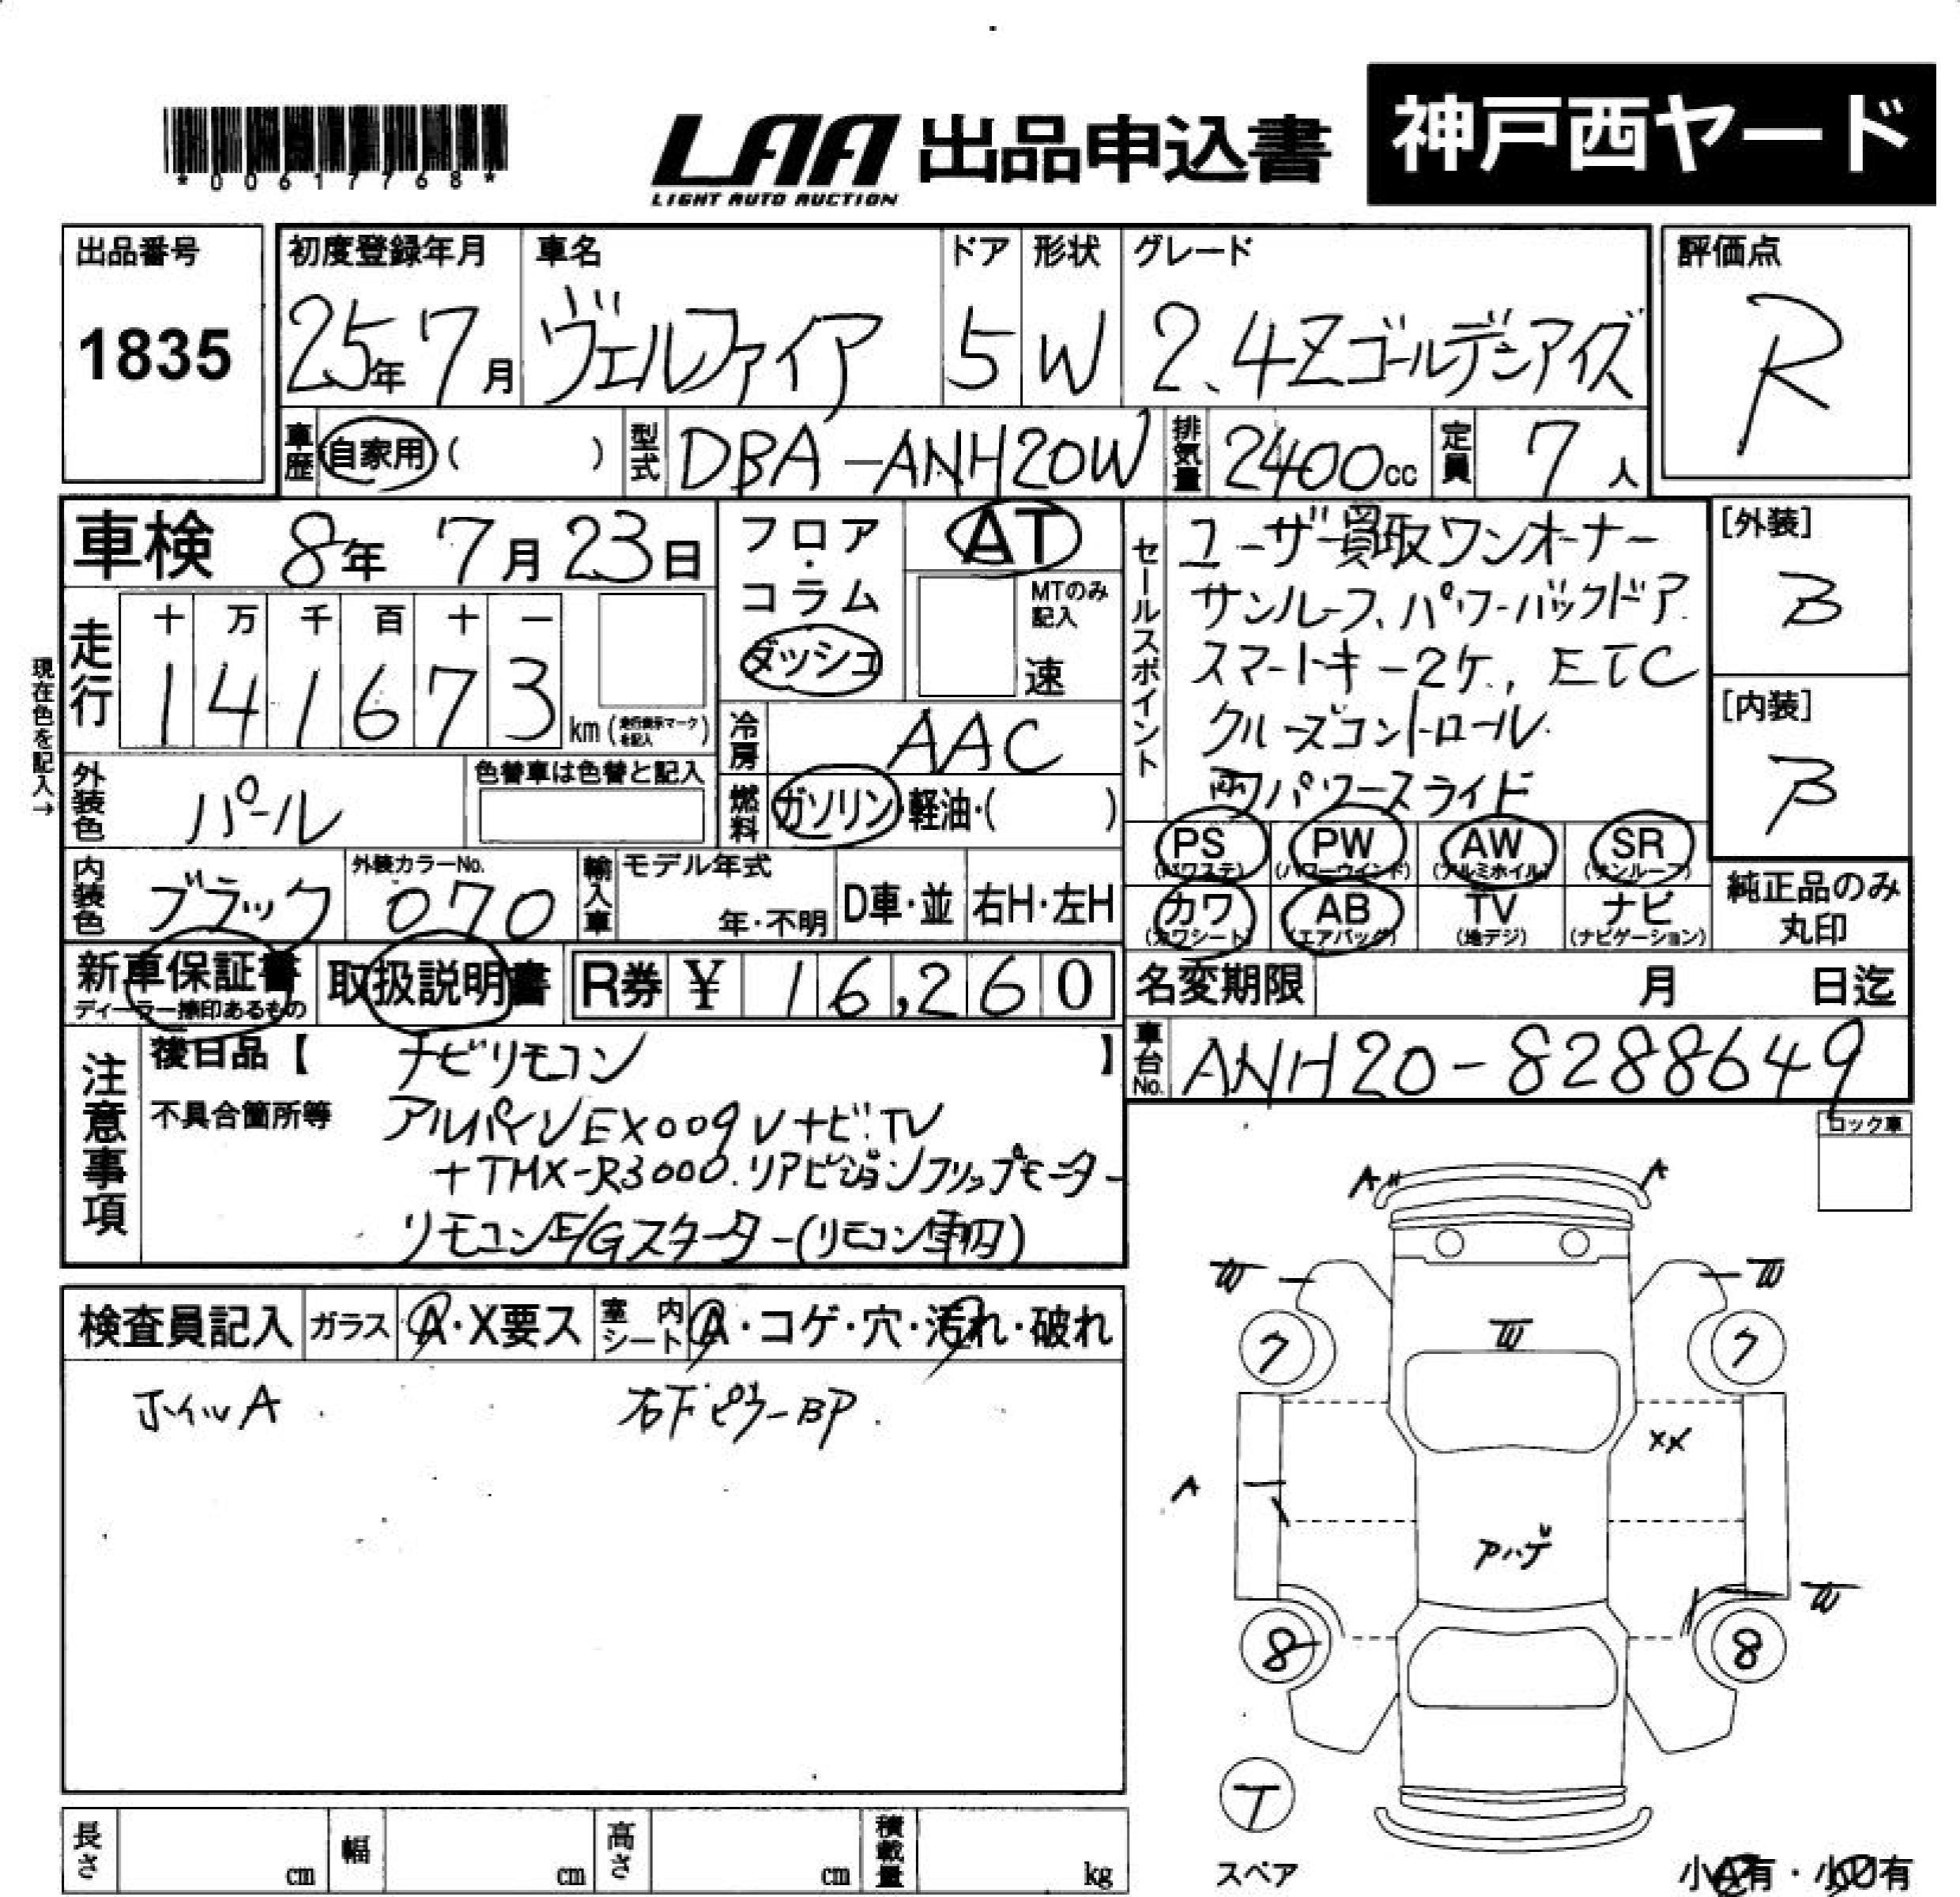 *00617768*
LAA
LIGHT AUTO AUCTION
出品申込書
神戸西ヤード
出品番号
1835
初度登録年月
25年7月
車名
ヴェルファイア
ドア
5
形状
W
グレード
2.4Zゴールデンアイズ
評価点
R
車歴 自家用 ( )
型式 DBA-ANH20W
排気量 2400cc
定員 7人
車検 8年 7月 23日
フロア・コラム
ダッシュ
AT
MTのみ記入
速
走行
十 万 千 百 十 一
1 4 1 6 7 3 km (走行表示マークを記入)
現在色を記入→
冷房 AAC
燃料 ガソリン・軽油・( )
外装色 パール
色替車は色替と記入
内装色 ブラック
外装カラーNo.
070
輸入車
モデル年式
年・不明
D車・並
右H・左H
セールスポイント
ユーザー買取ワンオーナー
サンルーフ、パワーバックドア
スマートキー2ケ、ETC
クルーズコントロール
両パワースライド
[外装]
B
[内装]
B
PS (パワステ)
PW (パワーウインド)
AW (アルミホイル)
SR (サンルーフ)
カワ (カワシート)
AB (エアバッグ)
TV (地デジ)
ナビ (ナビゲーション)
純正品のみ
丸印
新車保証書
ディーラー捺印あるもの
取扱説明書
R券 ¥ 16,260
名変期限 月 日迄
車台No. ANH20-8288649
注意事項
後日品【 ナビリモコン 】
不具合箇所等
アルパインEX009VナビTV
+TMX-R3000.リアビジョンフリップモニター
リモコンE/Gスターター(リモコン車内)
ロック車
検査員記入
ガラス A・X要ス
室内シート A・コゲ・穴・汚れ・破れ
ホイルA
右下ピラーBP
A
A
W
W
W
7
7
XX
A
アハゲ
W
8
8
T
スペア
長さ cm
幅 cm
高さ cm
積載量 kg
小A有・小U有